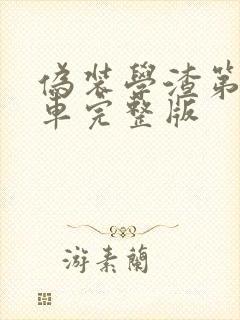 偽裝學渣第
車完整版
游素蘭